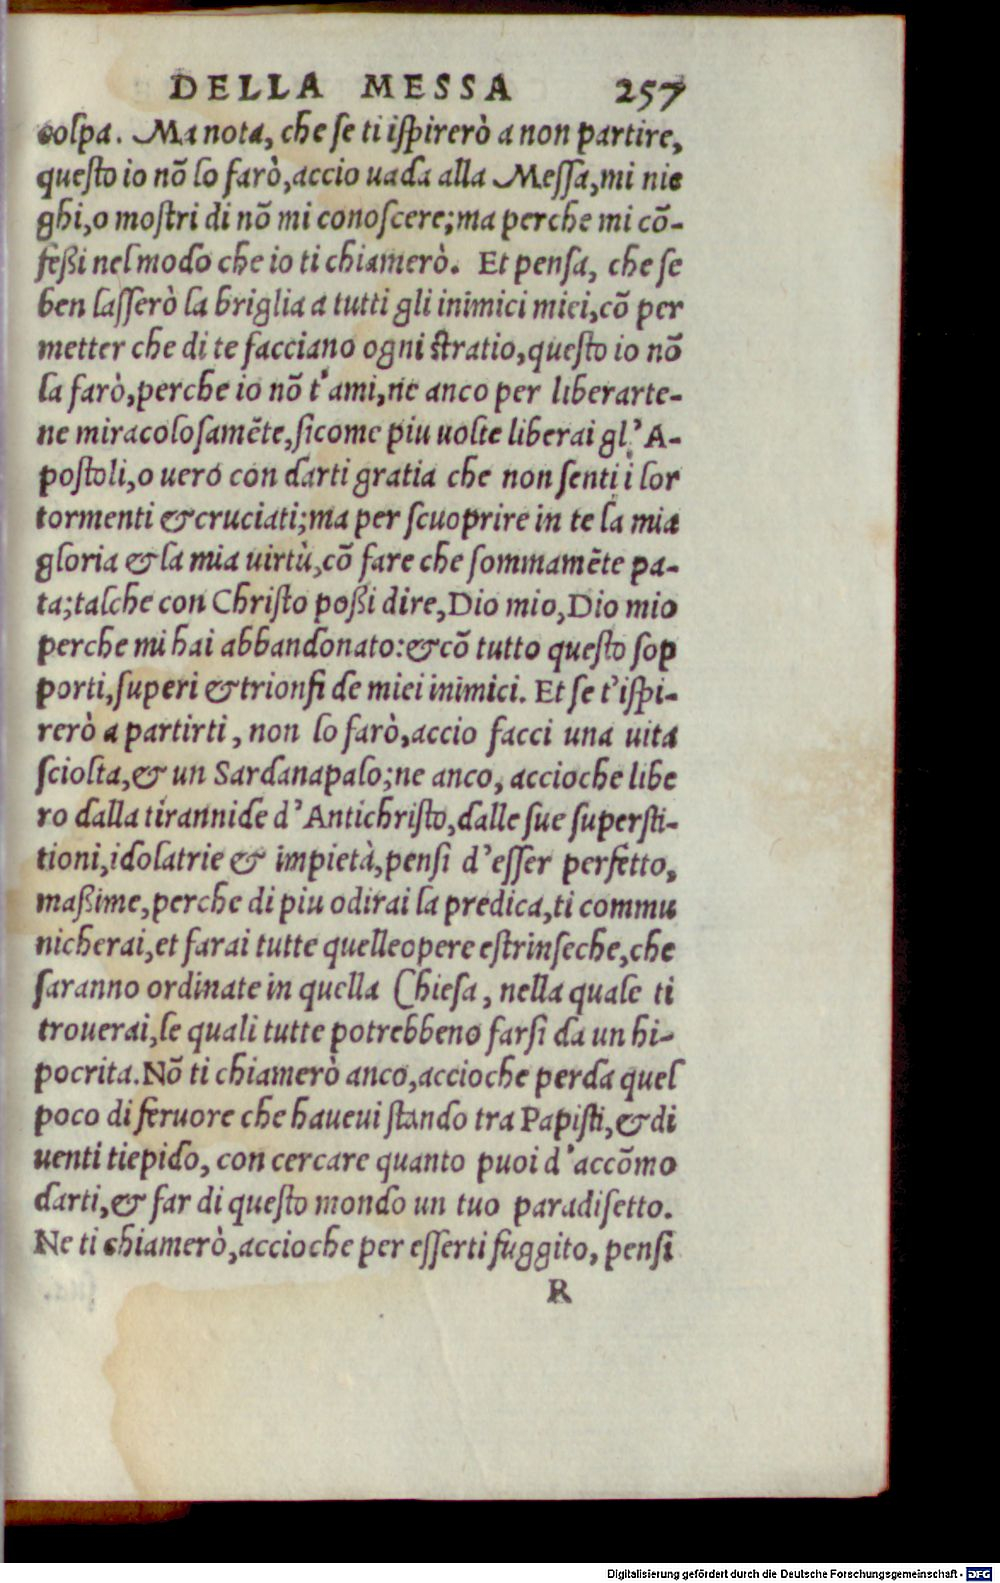 DELLA MESSA 257
colpa. Ma nota, che se ti ispirerò a non partire,
questo io nõ lo farò, accio uada alla Messa, mi nie
ghi, o mostri di nõ mi conoscere; ma perche mi cõ-
feßi nel modo che io ti chiamerò. Et pensa, che se
ben lasserò la briglia a tutti gli inimici miei, cõ per
metter che di te facciano ogni stratio, questo io nõ
la farò, perche io nõ t'ami, ne anco per liberarte-
ne miracolosamẽte, sicome piu uolte liberai gl'A-
postoli, o uero con darti gratia che non senti i lor
tormenti & cruciati; ma per scuoprire in te la mia
gloria & la mia uirtù, cõ fare che sommamẽte pa-
ta; talche con Christo poßi dire, Dio mio, Dio mio
perche mi hai abbandonato: & cõ tutto questo sop
porti, superi & trionfi de miei inimici. Et se t'ispi-
rerò a partirti, non lo farò, accio facci una uita
sciolta, & un Sardanapalo; ne anco, accioche libe
ro dalla tirannide d'Antichristo, dalle sue supersti-
tioni, idolatrie & impietà, pensi d'esser perfetto,
maßime, perche di piu odirai la predica, ti commu
nicherai, et farai tutte quelle opere estrinseche, che
saranno ordinate in quella Chiesa, nella quale ti
trouerai, le quali tutte potrebbeno farsi da un hi-
pocrita. Nõ ti chiamerò anco, accioche perda quel
poco di feruore che haueui stando tra Papisti, & di
uenti tiepido, con cercare quanto puoi d'accõmo
darti, & far di questo mondo un tuo paradisetto.
Ne ti chiamerò, accioche per esserti fuggito, pensi
R
Digitalisierung gefördert durch die Deutsche Forschungsgemeinschaft - DFG